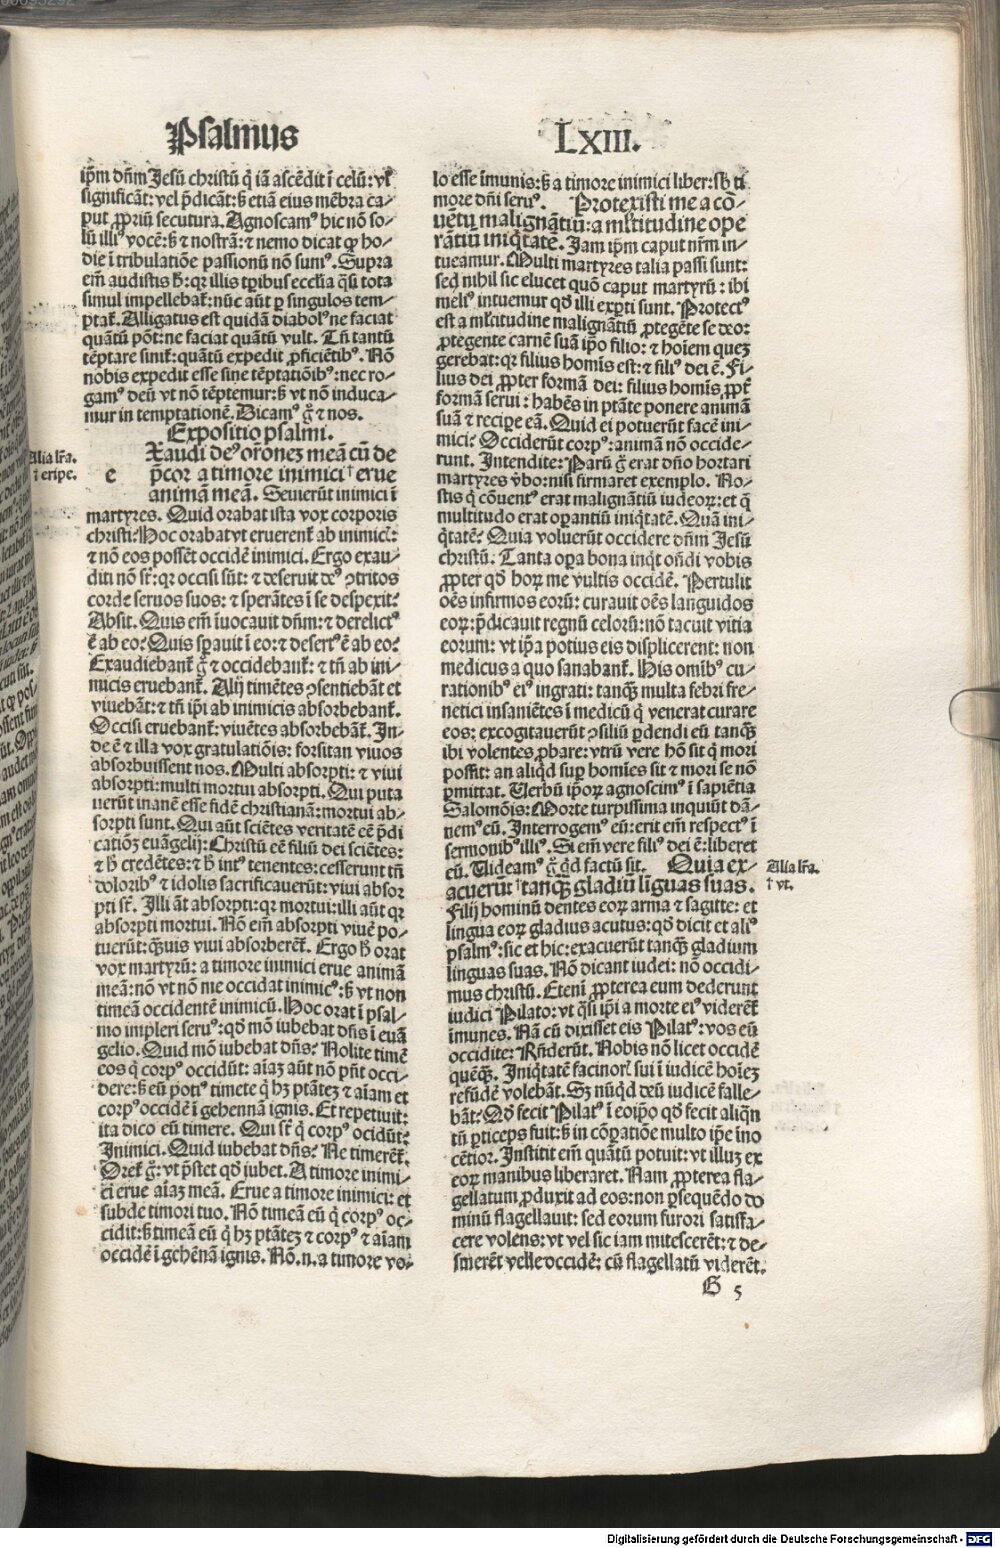 Psalmus LXIII.
ip̄m dn̄m Jesū christū q̄ iā ascēdit ī celū: vł
significāt: vel p̄dicāt: ß etiā eius mēbra ca-
put ꝓpriū secutura. Agnoscamꝰ hic nō so-
lū illiꝰ vocē: ß ⁊ nostrā: ⁊ nemo dicat ꝙ ho-
die ī tribulatiōe passionū nō sumꝰ. Supra
em̄ audistis ħ: qr illis tꝑibus ecclia q̄si tota
simul impellebat̄: nūc aūt ꝑ singulos tem-
ptat̄. Alligatus est quidā diabolꝰ ne faciat
quātū pōt: ne faciat quātū vult. Tn̄ tantū
tēptare sinit̄: quātū expedit ꝓficiētibꝰ. Nō
nobis expedit esse sine tēptatiōibꝰ: nec ro-
gamꝰ deū vt nō tēptemur: ß vt nō induca-
mur in temptationē. Dicamꝰ g̊ ⁊ nos.
Expositio psalmi.
Xaudi deꝰ orōnez meā cū de
Alia lr̄a.
e p̄cor a timore inimici † erue
† eripe.
animā meā. Seuierūt inimici ī
martyres. Quid orabat ista vox corporis
christi? Hoc orabat vt eruerent̄ ab inimic̄:
⁊ nō eos possēt occidē inimici. Ergo exau-
diti nō st̄: qr occisi sūt: ⁊ deseruit deꝰ ꝯtritos
corde seruos suos: ⁊ sperātes ī se despexit?
Absit. Quis em̄ īuocauit dn̄m: ⁊ derelictꝰ
ē ab eo? Quis sꝑauit ī eo: ⁊ desertꝰ ē ab eo?
Exaudiebant̄ g̊ ⁊ occidebant̄: ⁊ tn̄ ab ini-
micis eruebant̄. Alij timētes ꝯsentiebāt et
viuebāt: ⁊ tn̄ ip̄i ab inimicis absorbebant̄.
Occisi eruebant̄: viuētes absorbebāt̄. In-
de ē ⁊ illa vox gratulatiōis: forsitan viuos
absorbuissent nos. Multi absorpti: ⁊ viui
absorpti: multi mortui absorpti. Qui puta
uerūt inanē esse fidē christianā: mortui ab-
sorpti sunt. Qui aūt sciētes veritatē eē p̄di
catiōz euāgelij: Christū eē filiū dei sciētes:
⁊ ħ credētes: ⁊ ħ intꝰ tenentes: cesserunt tn̄
doloribꝰ ⁊ idolis sacrificauerūt: viui absor
pti st̄. Illi āt absorpti: qr mortui: illi aūt qr
absorpti mortui. Nō em̄ absorpti viuē po-
tuerūt: q̄uis viui absorberēt̄. Ergo ħ orat
vox martyrū: a timore inimici erue animā
meā: nō vt nō me occidat inimicꝰ: ß vt non
timeā occidentē inimicū. Hoc orat ī psal-
mo impleri seruꝰ: qd̄ mō iubebat dn̄s ī euā
gelio. Quid mō iubebat dn̄s? Nolite timē
eos q̄ corpꝰ occidūt: aīaz aūt nō pn̄t occi-
dere: ß eū potiꝰ timete q̄ hz ptātez ⁊ aīam et
corpꝰ occidē ī gehennā ignis. Et repetiuit:
ita dico eū timere. Qui st̄ q̄ corpꝰ ocidūt?
Inimici. Quid iubebat dn̄s? Ne timerēt̄.
Oret̄ g̊: vt p̄stet qd̄ iubet. A timore inimi-
ci erue aīaz meā. Erue a timore inimici: et
subde timori tuo. Nō timeā eū q̄ corpꝰ oc-
cidit: ß timeā eū q̄ hz ptātez ⁊ corpꝰ ⁊ aīam
occidē ī gehēnā ignis. Nō .n. a timore vo-
lo esse īmunis: ß a timore inimici liber: sb̄ ti
more dn̄i seruꝰ. Protexisti me a cō-
uētu malignātiū: a mł̄titudine ope
rātiū iniq̄tatē. Jam ip̄m caput nr̄m in-
tueamur. Multi martyres talia passi sunt:
sed nihil sic elucet quō caput martyrū: ibi
meliꝰ intuemur qd̄ illi exꝑti sunt. Protectꝰ
est a mł̄titudine malignātiū ꝓtegēte se deo:
ꝓtegente carnē suā ip̄o filio: ⁊ hoīem quez
gerebat: qr filius homīs est: ⁊ filiꝰ dei ē. Fi-
lius dei ꝓpter formā dei: filius homīs ꝓpt̄
formā serui: habēs in ptāte ponere animā
suā ⁊ recipe eā. Quid ei potuerūt facē ini-
mici? Occiderūt corpꝰ: animā nō occide-
runt. Intendite: Parū g̊ erat dn̄o hortari
martyres v̄bo: nisi firmaret exemplo. No-
stis q̄ cōuentꝰ erat malignātiū iudeoꝝ: et q̄
multitudo erat oꝑantiū iniq̄tatē. Quā ini-
q̄tatē? Quia voluerūt occidere dn̄m Jesū
christū. Tanta oꝑa bona inqt on̄di vobis
ꝓpter qd̄ hoꝝ me vultis occidē. Pertulit
oēs infirmos eorū: curauit oēs languidos
eoꝝ: p̄dicauit regnū celorū: nō tacuit vitia
eorum: vt ip̄a potius eis displicerent: non
medicus a quo sanabant̄. His omībꝰ cu-
rationibꝰ eiꝰ ingrati: tanq̄ multa febri fre-
netici insaniētes ī medicū q̄ venerat curare
eos: excogitauerūt ꝯsiliū ꝑdendi eū tanq̄
ibi volentes ꝓbare: vtrū vere hō sit q̄ mori
possit: an aliqd̄ suꝑ homīes sit ⁊ mori se nō
ꝑmittat. Verbū ip̄oꝝ agnoscimꝰ ī sapiētia
Salomōis: Morte turpissima inquiūt dā-
nemꝰ eū. Interrogemꝰ eū: erit em̄ respectꝰ ī
sermonibꝰ illiꝰ. Si em̄ vere filiꝰ dei ē: liberet
eū. Videamꝰ g̊ qd̄ factū sit. Quia ex-
Alia lr̄a.
acuerūt † tanq̄ gladiū līguas suas.
† vt.
Filij hominū dentes eoꝝ arma ⁊ sagitte: et
lingua eoꝝ gladius acutus: qd̄ dicit et aliꝰ
psalmꝰ: sic et hic: exacuerūt tanq̄ gladium
linguas suas. Nō dicant iudei: nō occidi-
mus christū. Etenī ꝓpterea eum dederunt
iudici Pilato: vt q̄si ip̄i a morte eiꝰ viderēt̄
īmunes. Nā cū dixisset eis Pilatꝰ: vos eū
occidite: Rn̄derūt. Nobis nō licet occidē
quēq̄. Iniq̄tatē facinorꝭ sui ī iudicē hoīez
refūdē volebāt. Sz nūqd̄ deū iudicē falle-
bāt? Qd̄ fecit Pilatꝰ ī eoip̄o qd̄ fecit aliqn̄
tū ꝑticeps fuit: ß in cōꝑatiōe multo ip̄e īno
cētior. Institit em̄ quātū potuit: vt illuz ex
eoꝝ manibus liberaret. Nam ꝓpterea fla-
gellatum ꝓduxit ad eos: non ꝑsequēdo do
minū flagellauit: sed eorum furori satisfa-
cere volens: vt vel sic iam mitescerēt: ⁊ de-
sinerēt velle occidē: cū flagellatū viderēt.
G 5
Digitalisierung gefördert durch die Deutsche Forschungsgemeinschaft - DFG